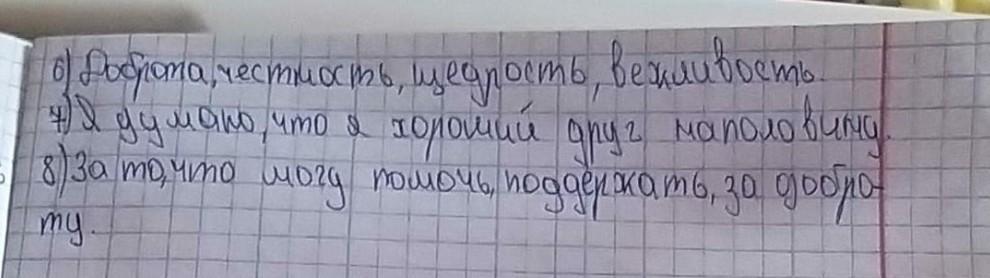 6) Доброта, честность, щедрость, вежливость.
7) Я думаю, что я хороший друг наполовину.
8) За то, что могу помочь, поддержать, за добро-
ту.